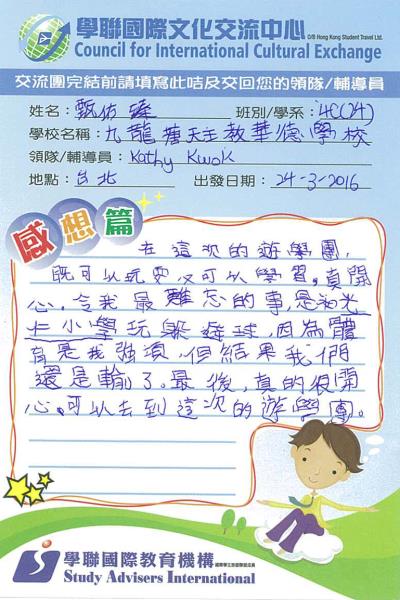 學聯國際文化交流中心
O/B Hong Kong Student Travel Ltd.
Council for International Cultural Exchange
交流團完結前請填寫此咭及交回您的領隊/輔導員
姓名：甄佑臻 班別/學系：4C(24)
學校名稱：九龍塘天主教華德學校
領隊/輔導員：Kathy Kwok
地點：台北 出發日期：24-3-2016
感想篇
在這次的遊學團，
既可以玩耍又可以學習，真開
心。令我最難忘的事，是和光
仁小學玩躲避球，因為體
育是我強項，但結果我們
還是輸了。最後，真的很開
心，可以去到這次的遊學團。
學聯國際教育機構
Study Advisers International